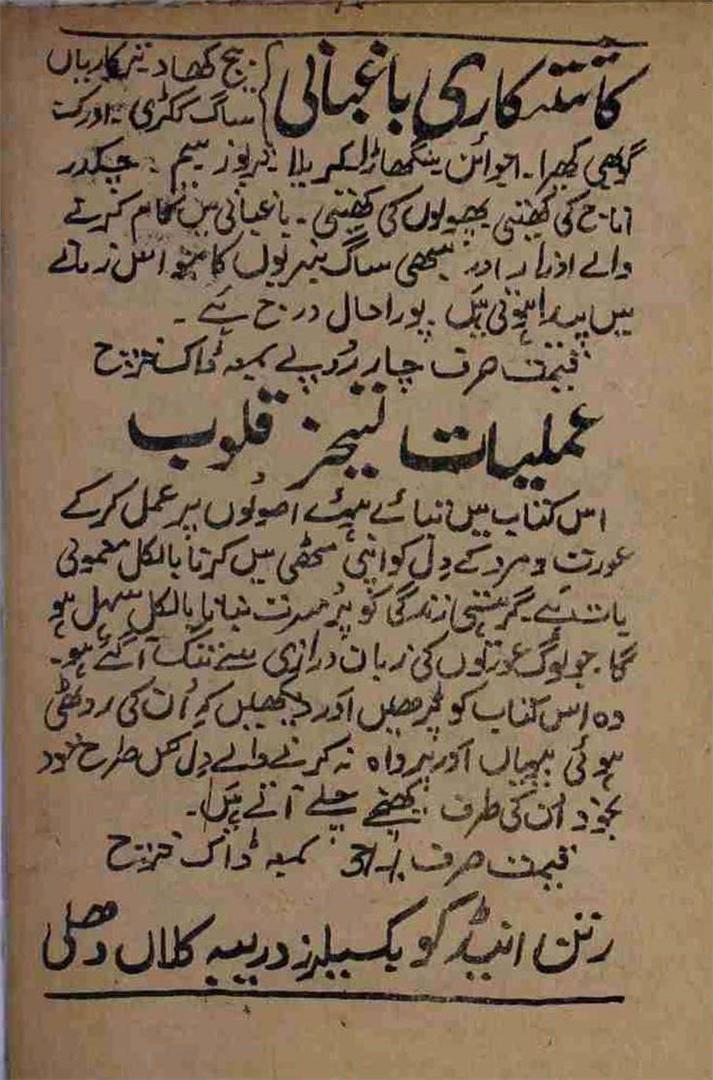 کاشتکاری باغبانی } بیج کھاد ترکاریاں
ساگ ککڑی۔ اورک
گوبھی کھیرا۔ اجوائن سنگھاڑا کریلا۔ تربوز سیم۔ چکندر
اناج کی کھیتی پھولوں کی کھیتی۔ باغبانی میں کام کرنے
والے اوزار اور سبھی ساگ سبزیوں کا جو اس زمانے
میں پیدا ہوتی ہیں پورا حال درج ہے۔
قیمت صرف چار روپے بمعہ ڈاک خرچ
عملیات تسخیر قلوب
اس کتاب میں بتائے ہوئے اصولوں پر عمل کر کے
عورت و مرد کے دل کو اپنی مٹھی میں کرنا بالکل معمولی
بات ہے۔ گرہستی زندگی کو پُر مسرت بنانا بالکل سہل ہو
گا۔ جو لوگ عورتوں کی زبان درازی سے تنگ آ گئے ہو۔
وہ اس کتاب کو پڑھیں اور دیکھیں کہ اُن کی روٹھی
ہوئی بیویاں اور پرواہ نہ کرنے والے دل کس طرح خود
بخود اُن کی طرف کھنچے چلے آتے ہیں۔
قیمت صرف -/3 بمعہ ڈاک خرچ
رتن اینڈ کو بکسیلرز دریبہ کلاں دھلی